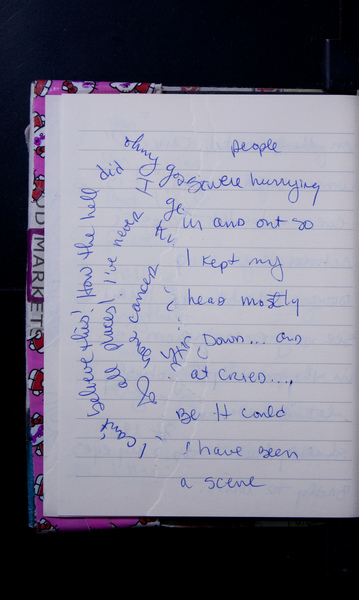 people
were hurrying
in and out so
I kept my
head mostly
down... and
at cried....
Be it could
I have been
a scene
ohmy god
I can't
believe this! How the hell did
all places! I've never
cancer
D MARKETS